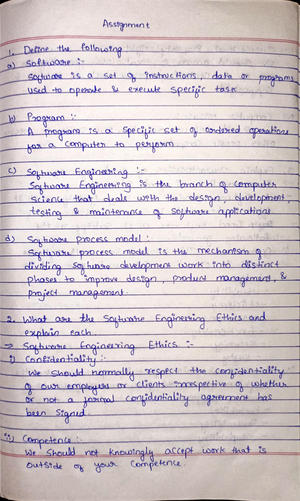 Assignment
1. Define the following
a) Software :-
Software is a set of instructions, data or programs
used to operate & execute specific task
b) Program :-
A program is a specific set of ordered operations
for a computer to perform
c) Software Engineering :-
Software Engineering is the branch of computer
science that deals with the design, development,
testing & maintenance of software applications
d) Software process model :
Software process model is the mechanism of
dividing software development work into distinct
phases to improve design, product management, &
project management.
2. What are the Software Engineering Ethics and
explain each.
→ Software Engineering Ethics :-
i) Confidentiality :-
We should normally respect the confidentiality
of our employers or clients irrespective of whether
or not a formal confidentiality agreement has
been signed.
ii) Competence :
We should not knowingly accept work that is
outside of your competence.